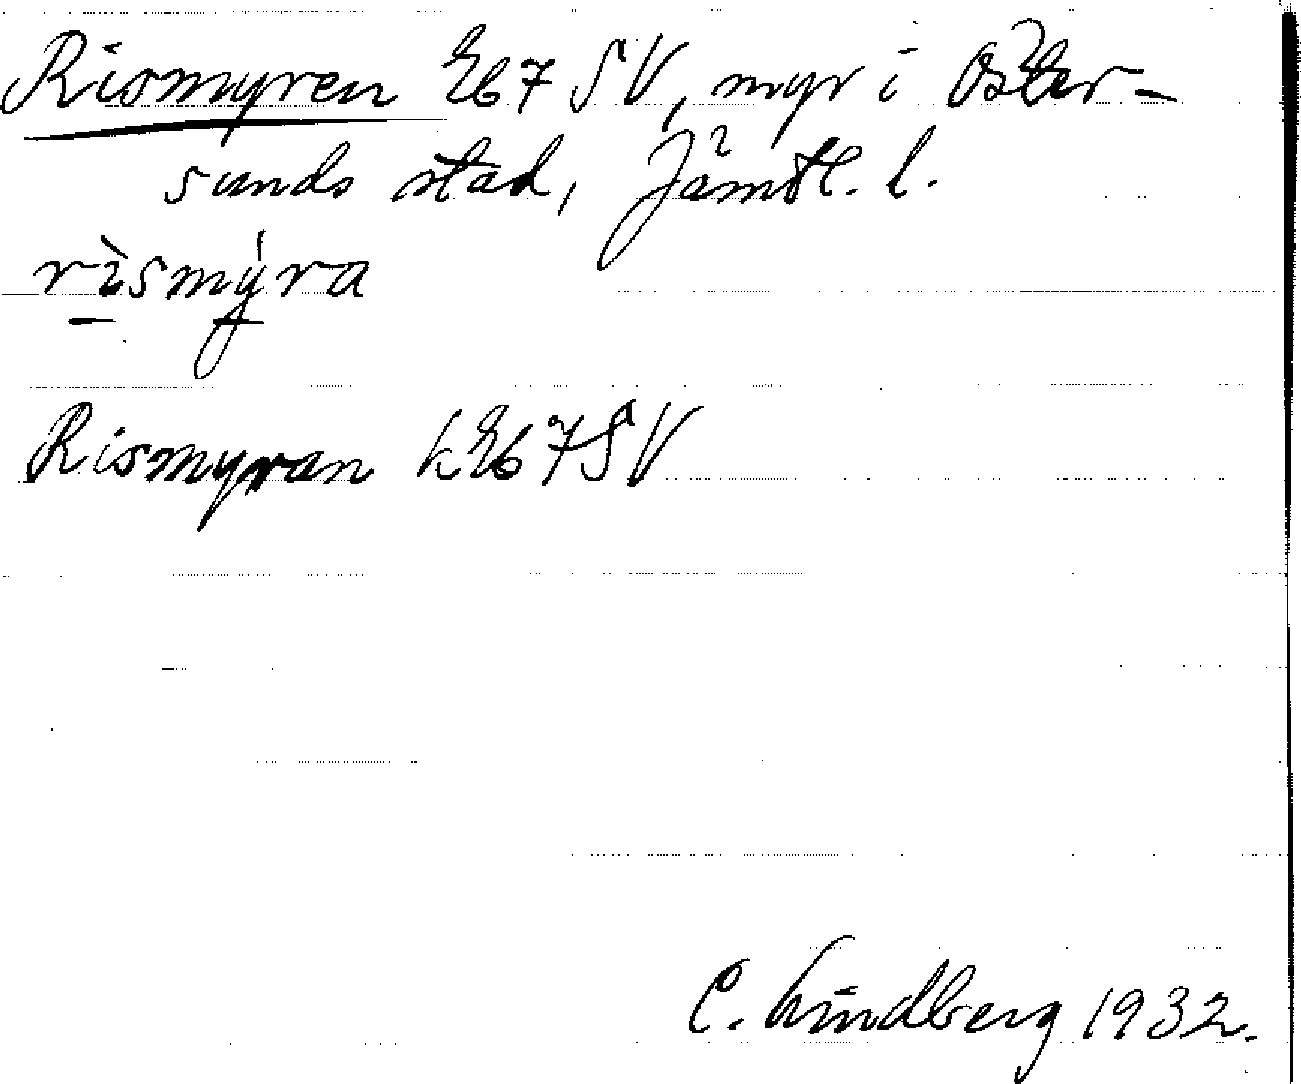 Rismyren Eb7 SV, myr i Öster-
sunds stad, Jämtl. l.
rìsmýra
Rismyran kEb7SV
C. Lindberg 1932.